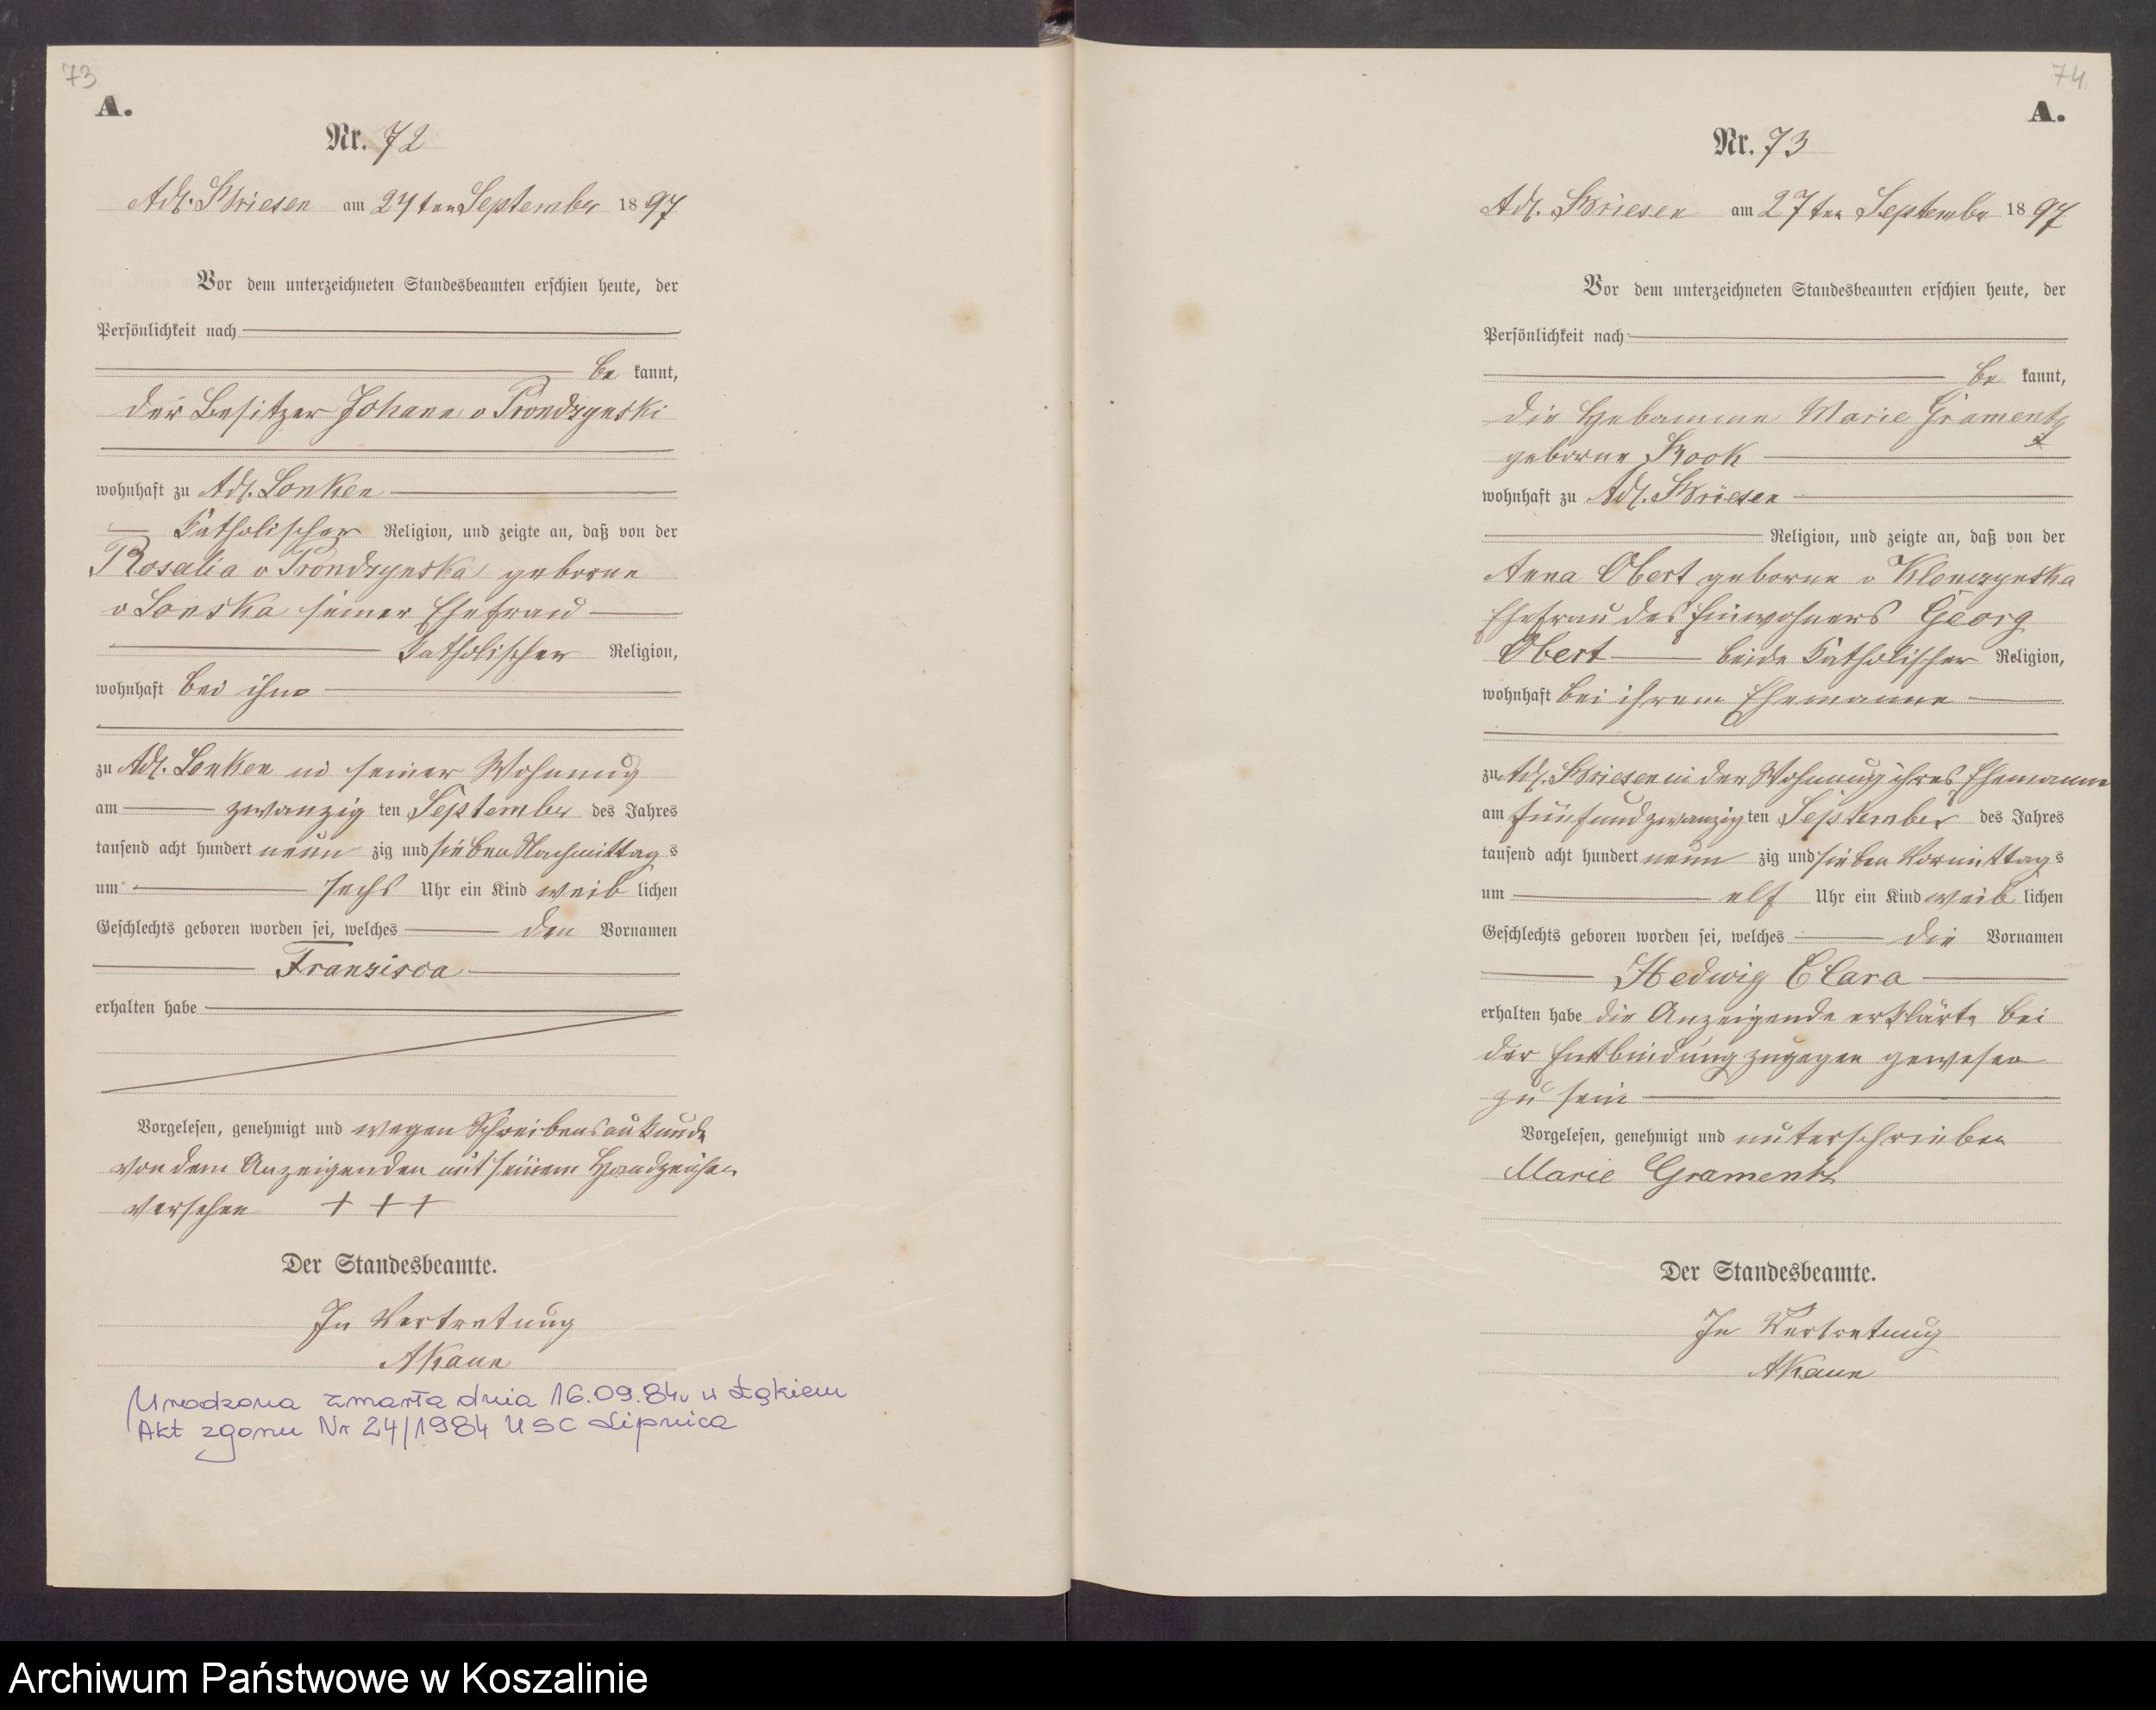 73
A.
Nr. 72
Adl. Briesen am 24ten September 1897
Vor dem unterzeichneten Standesbeamten erschien heute, der
Persönlichkeit nach
be kannt,
der Besitzer Johann v Prondzynski
wohnhaft zu Adl. Lonken
katholischer Religion, und zeigte an, daß von der
Rosalia v Prondzynska geborne
v Lonska seiner Ehefrau
katholischer Religion,
wohnhaft bei ihm
zu Adl. Lonken in seiner Wohnung
am zwanzig ten September des Jahres
tausend acht hundert neun zig und sieben Nachmittag s
um sechs Uhr ein Kind weib lichen
Geschlechts geboren worden sei, welches den Vornamen
Franzisca
erhalten habe
Vorgelesen, genehmigt und wegen Schreibensunkunde
von dem Anzeigenden mit seinem Handzeichen
versehen + + +
Der Standesbeamte.
In Vertretung
AKaun
Urodzona zmarła dnia 16.09.84r w Łąkiem
Akt zgonu Nr 24/1984 USC Lipnica
74
A.
Nr. 73
Adl. Briesen am 27ten September 1897
Vor dem unterzeichneten Standesbeamten erschien heute, der
Persönlichkeit nach
be kannt,
die Hebamme Marie Gramentz
geborne Kook
wohnhaft zu Adl. Briesen
Religion, und zeigte an, daß von der
Anna Obert geborne v Klonczynska
Ehefrau des Einwohners Georg
Obert beide katholischer Religion,
wohnhaft bei ihrem Ehemanne
zu Adl. Briesen in der Wohnung ihres Ehemanne
am fünfundzwanzig ten September des Jahres
tausend acht hundert neun zig und sieben Vormittag s
um elf Uhr ein Kind weib lichen
Geschlechts geboren worden sei, welches die Vornamen
Hedwig Clara
erhalten habe die Anzeigende erklärte bei
der Entbindung zugegen gewesen
zu sein
Vorgelesen, genehmigt und unterschrieben
Marie Gramentz
Der Standesbeamte.
In Vertretung
AKaun
Archiwum Państwowe w Koszalinie